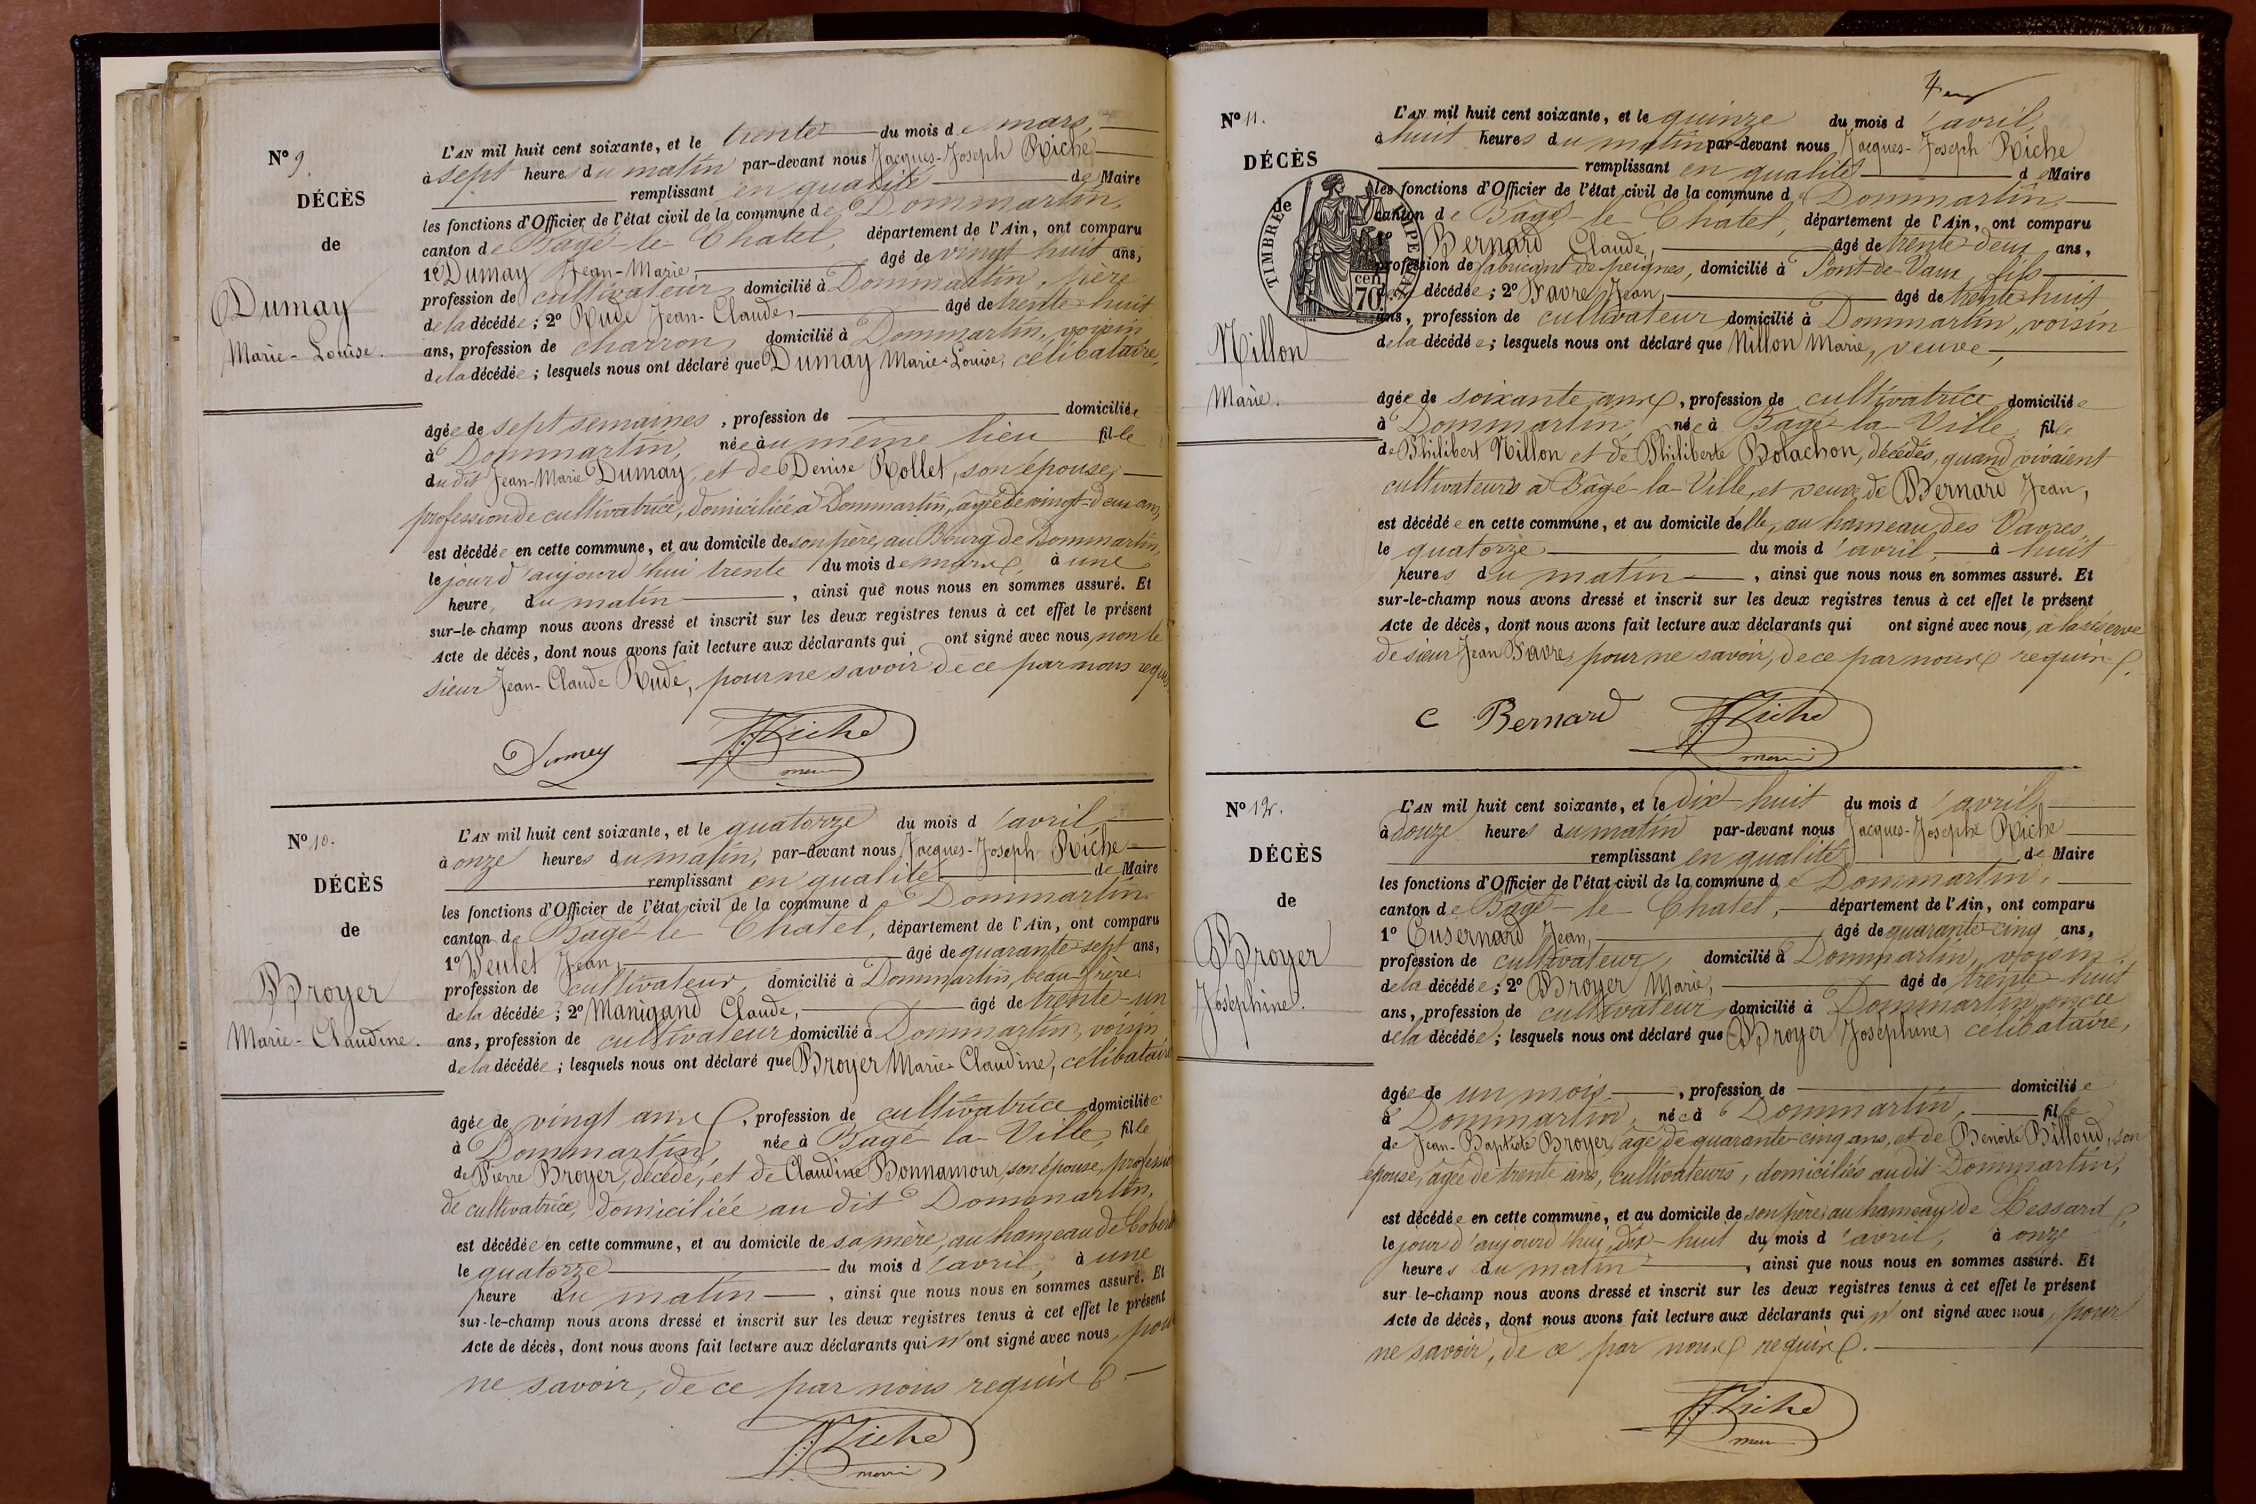 N° 9.
DÉCÈS
de
Dumay
Marie-Louise.
L'AN mil huit cent soixante, et le trente du mois de mars,
à sept heures du matin par-devant nous Jacques-Joseph Riche
remplissant en qualité de Maire
les fonctions d'Officier de l'état civil de la commune de Dommartin,
canton de Bagé-le-Chatel, département de l'Ain, ont comparu
1° Dumay Jean-Marie, âgé de vingt huit ans,
profession de cultivateur, domicilié à Dommartin, père
de la décédée; 2° Rude Jean-Claude, âgé de trente-huit
ans, profession de charron, domicilié à Dommartin, voisin
de la décédée; lesquels nous ont déclaré que Dumay Marie-Louise, célibataire,
âgée de sept semaines, profession de domiciliée
à Dommartin, née au même lieu fille
du dit Jean-Marie Dumay, et de Denise Rollet, son épouse,
profession de cultivatrice, domiciliée à Dommartin, âgée de vingt-deux ans,
est décédée en cette commune, et au domicile de son père, au Bourg de Dommartin,
le jour d'aujourd'hui trente du mois de mars, à une
heure, du matin, ainsi que nous nous en sommes assuré. Et
sur-le-champ nous avons dressé et inscrit sur les deux registres tenus à cet effet le présent
Acte de décès, dont nous avons fait lecture aux déclarants qui ont signé avec nous, non le
sieur Jean-Claude Rude, pour ne savoir de ce par nous requis
Dumey JJRiche
maire
N° 10.
DÉCÈS
de
Broyer
Marie-Claudine.
L'AN mil huit cent soixante, et le quatorze du mois d'avril
à onze heures du matin, par-devant nous Jacques-Joseph Riche
remplissant en qualité de Maire
les fonctions d'Officier de l'état civil de la commune de Dommartin
canton de Bagé-le-Chatel, département de l'Ain, ont comparu
1° Veulet Jean, âgé de quarante-sept ans,
profession de cultivateur, domicilié à Dommartin, beau-frère
de la décédée; 2° Manigand Claude, âgé de trente-un
ans, profession de cultivateur domicilié à Dommartin, voisin
de la décédée; lesquels nous ont déclaré que Broyer Marie-Claudine, célibataire
âgée de vingt ans, profession de cultivatrice domiciliée
à Dommartin, née à Bagé-la-Ville, fille
de Pierre Broyer, décédé, et de Claudine Bonnamour, son épouse, profession
de cultivatrice, domiciliée au dit Dommartin,
est décédée en cette commune, et au domicile de sa mère, au hameau de
le quatorze du mois d'avril, à une
heure du matin, ainsi que nous nous en sommes assuré. Et
sur-le-champ nous avons dressé et inscrit sur les deux registres tenus à cet effet le présent
Acte de décès, dont nous avons fait lecture aux déclarants qui n'ont signé avec nous, pour
ne savoir, de ce par nous requis.
JJRiche
maire
N° 11.
DÉCÈS
de
TIMBRE IMPERIAL
70 cen
Nillon
Marie.
L'AN mil huit cent soixante, et le quinze du mois d'avril,
à huit heures du matin par-devant nous Jacques-Joseph Riche
remplissant en qualité de Maire
les fonctions d'Officier de l'état civil de la commune de Dommartin,
canton de Bâgé-le-Chatel, département de l'Ain, ont comparu
1° Bernard Claude, âgé de trente-deux ans,
profession de fabricant de peignes, domicilié à Pont-de-Vaux, fils
de la décédée; 2° Favre Jean, âgé de trente-huit
ans, profession de cultivateur domicilié à Dommartin, voisin
de la décédée; lesquels nous ont déclaré que Nillon Marie, veuve,
âgée de soixante ans, profession de cultivatrice domiciliée
à Dommartin, née à Bagé-la-Ville, fille
de Philibert Nillon et de Philiberte Bolachon, décédés, quand vivaient
cultivateurs à Bâgé-la-Ville, et veuve de Bernard Jean,
est décédée en cette commune, et au domicile d'elle, au hameau des Vavres,
le quatorze du mois d'avril à huit
heures du matin, ainsi que nous nous en sommes assuré. Et
sur-le-champ nous avons dressé et inscrit sur les deux registres tenus à cet effet le présent
Acte de décès, dont nous avons fait lecture aux déclarants qui ont signé avec nous, à la réserve
de sieur Jean Favre, pour ne savoir, de ce par nous requis.
C Bernard JJRiche
maire
N° 12.
DÉCÈS
de
Broyer
Joséphine.
L'AN mil huit cent soixante, et le dix-huit du mois d'avril,
à douze heures du matin par-devant nous Jacques-Joseph Riche
remplissant en qualité de Maire
les fonctions d'Officier de l'état civil de la commune de Dommartin,
canton de Bagé-le-Chatel, département de l'Ain, ont comparu
1° Cusernard Jean, âgé de quarante-cinq ans,
profession de cultivateur, domicilié à Dommartin, voisin
de la décédée; 2° Broyer Marie, âgé de trente-huit
ans, profession de cultivateur, domicilié à Dommartin, oncle
de la décédée; lesquels nous ont déclaré que Broyer Joséphine, célibataire,
âgée de un mois, profession de domiciliée
à Dommartin, née à Dommartin, fille
de Jean-Baptiste Broyer, âgé de quarante-cinq ans, et de Benoite Billoud, son
épouse, âgée de trente ans, cultivateurs, domiciliés au dit Dommartin,
est décédée en cette commune, et au domicile de son père, au hameau de Lessard,
le jour d'aujourd'hui, dix-huit du mois d'avril, à onze
heures du matin, ainsi que nous nous en sommes assuré. Et
sur-le-champ nous avons dressé et inscrit sur les deux registres tenus à cet effet le présent
Acte de décès, dont nous avons fait lecture aux déclarants qui n'ont signé avec nous, pour
ne savoir, de ce par nous requis.
JJRiche
maire